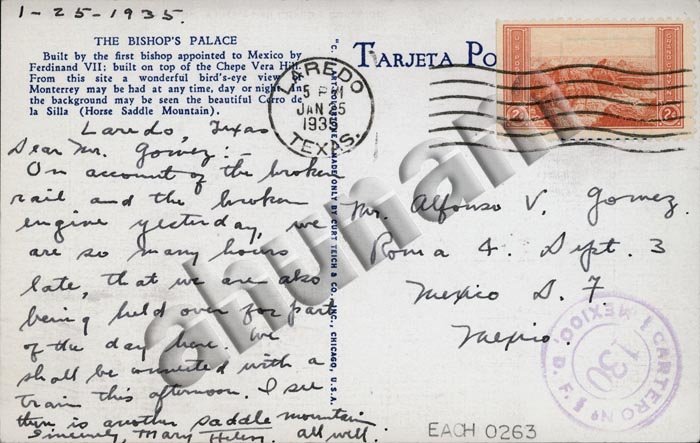 1-25-1935.
THE BISHOP'S PALACE
Built by the first bishop appointed to Mexico by
Ferdinand VII; built on top of the Chepe Vera Hill.
From this site a wonderful bird's-eye view
Monterrey may be had at any time, day or night. In
the background may be seen the beautiful Cerro de
la Silla (Horse Saddle Mountain).
Laredo, Texas
Dear Mr. Gomez:-
On account of the broken
rail and the broken
engine yesterday, we
are so many hours
late, that we are also
being held over for part
of the day here. We
shall be connected with a
train this afternoon. I see
there is another saddle mountain
Sincerely, Mary Helen. all well.
MADE ONLY BY CURT TEICH & CO., INC., CHICAGO, U.S.A.
TARJETA PO
LAREDO
5 PM
JAN 25
1935
TEXAS.
2¢ 2¢
Mr. Alfonso V. Gomez.
Roma 4. Dept. 3
Mexico D. F.
Mexico.
CARTERO No
130
MEXICO, D. F.
ahunam
EACH 0263